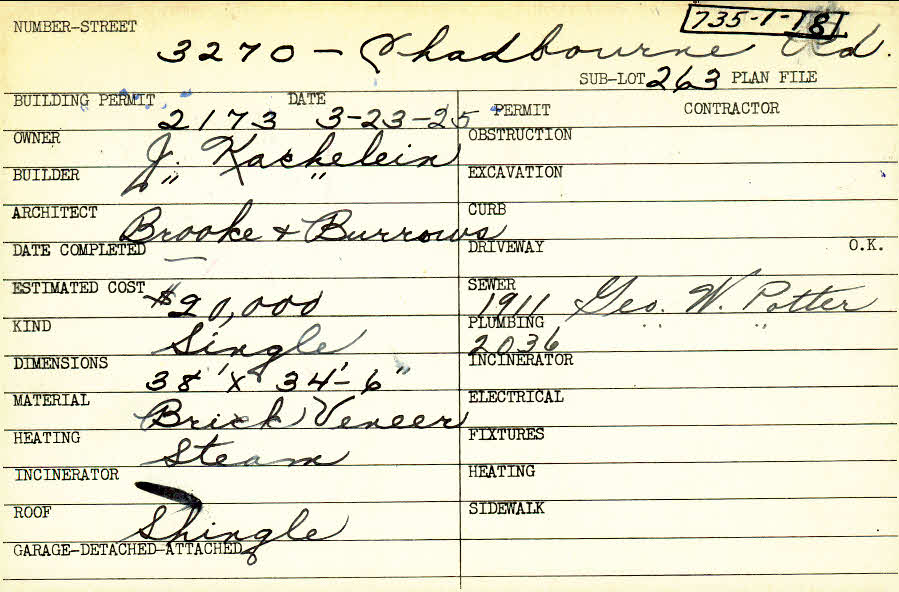 735-1-18
NUMBER-STREET
3270 - Chadbourne Rd.
SUB-LOT 263 PLAN FILE
BUILDING PERMIT DATE
2173 3-23-25
OWNER
J. Kachelein
BUILDER
" "
ARCHITECT
Brooke & Burrows
DATE COMPLETED
—
ESTIMATED COST
$20,000
KIND
Single
DIMENSIONS
38' x 34'-6"
MATERIAL
Brick Veneer
HEATING
Steam
INCINERATOR
ROOF
Shingle
GARAGE-DETACHED-ATTACHED
PERMIT CONTRACTOR
OBSTRUCTION
EXCAVATION
CURB
DRIVEWAY O.K.
SEWER
1911 Geo. W. Potter
PLUMBING
2036 " "
INCINERATOR
ELECTRICAL
FIXTURES
HEATING
SIDEWALK